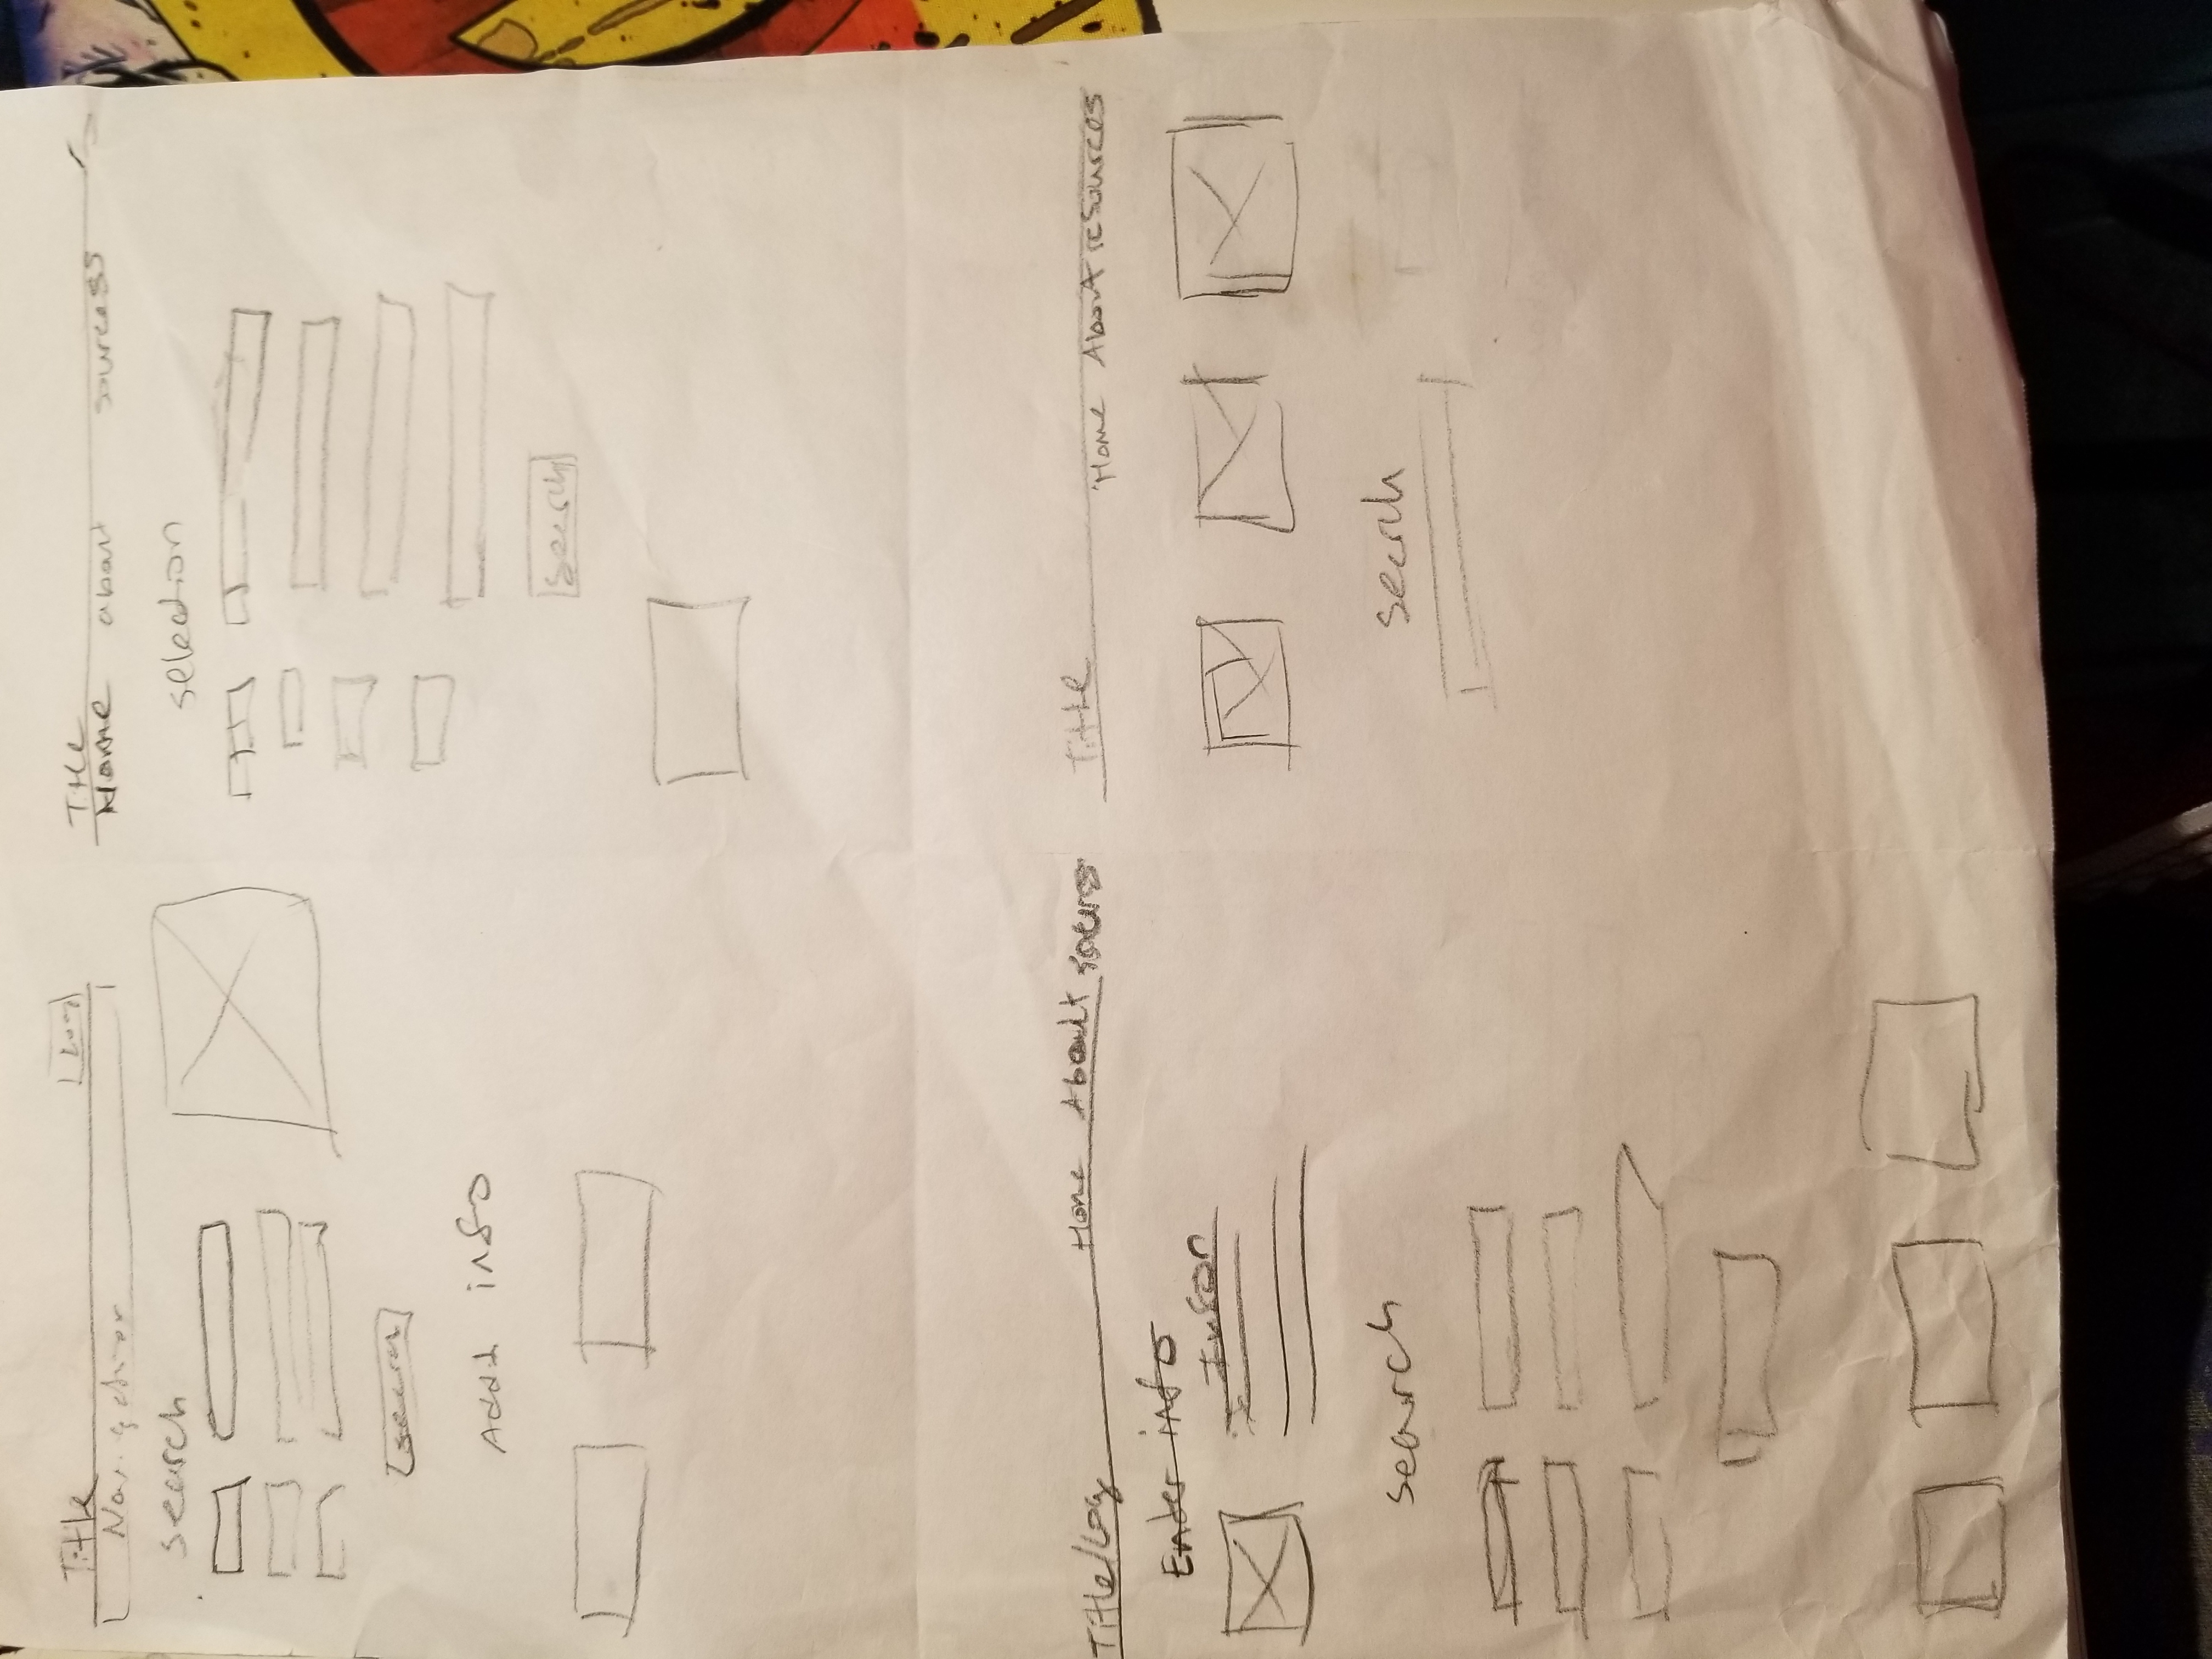 Title
Navigation
search
search
Add'l info
Title
Home about sourcess
selection
search
Title/Log Home About
Enter info
Infor
search
Title
Home About resources
search